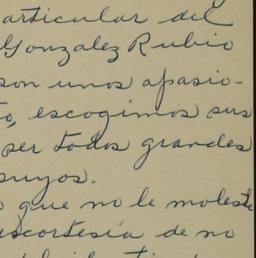 articular del
Gonzalez Rubio
son unos apasio-
to, escogimos sus
ser todos grandes
suyos.
que no le moleste
escortesía de no